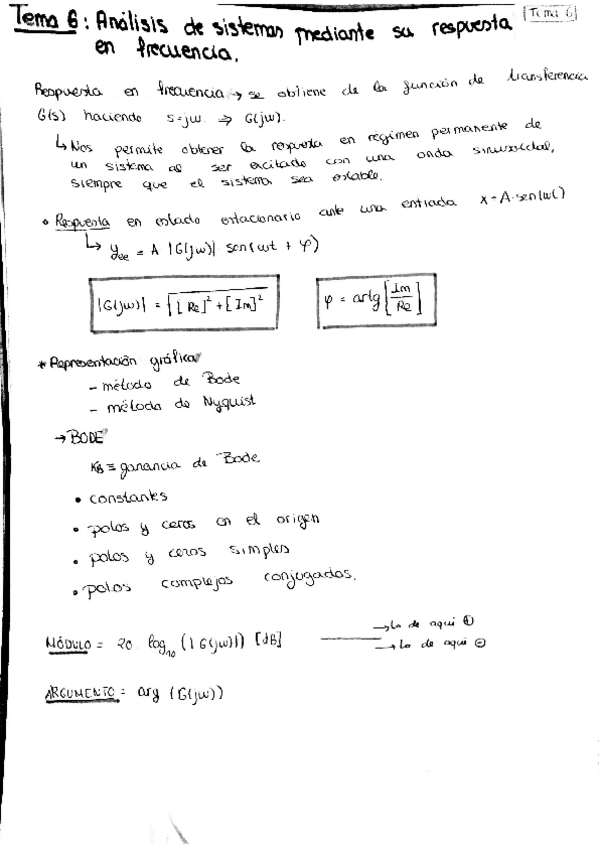 Tema 6: Análisis de sistemas mediante su respuesta
Tema 6
en frecuencia.
Respuesta en frecuencia → se obtiene de la función de transferencia
G(s) haciendo s=jω ⇒ G(jω).
↳ Nos permite obtener la respuesta en régimen permanente de
un sistema al ser excitado con una onda sinusoidal,
siempre que el sistema sea estable.
• Respuesta en estado estacionario ante una entrada x = A·sen(ωt)
↳ yee = A |G(jω)| sen(ωt + φ)
|G(jω)| = √([Re]² + [Im]²)
φ = artg [Im/Re]
* Representación gráfica
- método de Bode
- método de Nyquist
→ BODE
KB ≡ ganancia de Bode
• constantes
• polos y ceros en el origen
• polos y ceros simples
• polos complejos conjugados.
MÓDULO = 20 log10 (|G(jω)|) [dB]
→ Lo de aquí ⊕
→ Lo de aquí ⊖
ARGUMENTO = arg (G(jω))